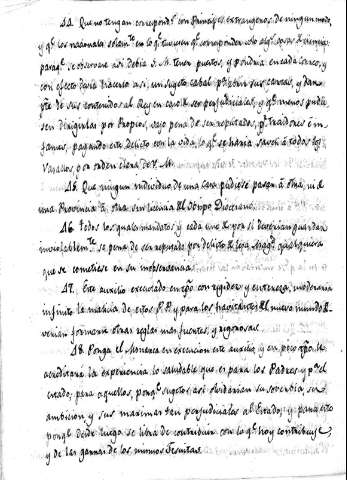 44. Que no tengan correspond.ª con Principes extrangeros, de ningun modo,
y q.e los nacionales solam.te en lo q.e tuvieren q.e corresponder
para q.e se observase asi debia S. M. tener puestos, y pondria en cada
con efecto haria hacerlo asi, un sugeto cabal
p.te de sus contenidos al Rey en caso de ser perjudiciales, y q.e menos pudie-
sen dirigirlas por Propios, vajo pena de ser reputados, p.r Traidores è in-
fames, pagando este delicto con la vida, lo q.e se haria saver à todos los
Vasallos, por orden de V. M.
45. Que ningun individuo de una Casa pudiese pasar à otra, ni de
una Provincia à otra sin licencia del Obispo Diocesano.
46. Todos los quales mandatos y cada uno de por si deverian guardar
inviolablem.te so pena de ser reputado por delicto de lesa Mag.d qualquiera
que se cometiese en su inobservancia.
47. Este auxilio executado en con rigidez y entereza, moderaria
infinito la malicia de estos P. P. y para los havitantes del nuevo mundo de-
verian formarse otras reglas mas fuertes, y rigorosas.
48. Ponga el Monarca en execucion este auxilio y en poco le
acreditarà la experiencia lo saludable que es para los Padres y p.a el
estado; para aquellos, porq.e sugetos asi olvidarian su sobervia, su
ambicion y sus maximas tan perjudiciales al Estado; y para este
porq.e desde luego se libra de contribuir con lo q.e hoy contribuye,
y de las garras de los mismos Jesuitas.